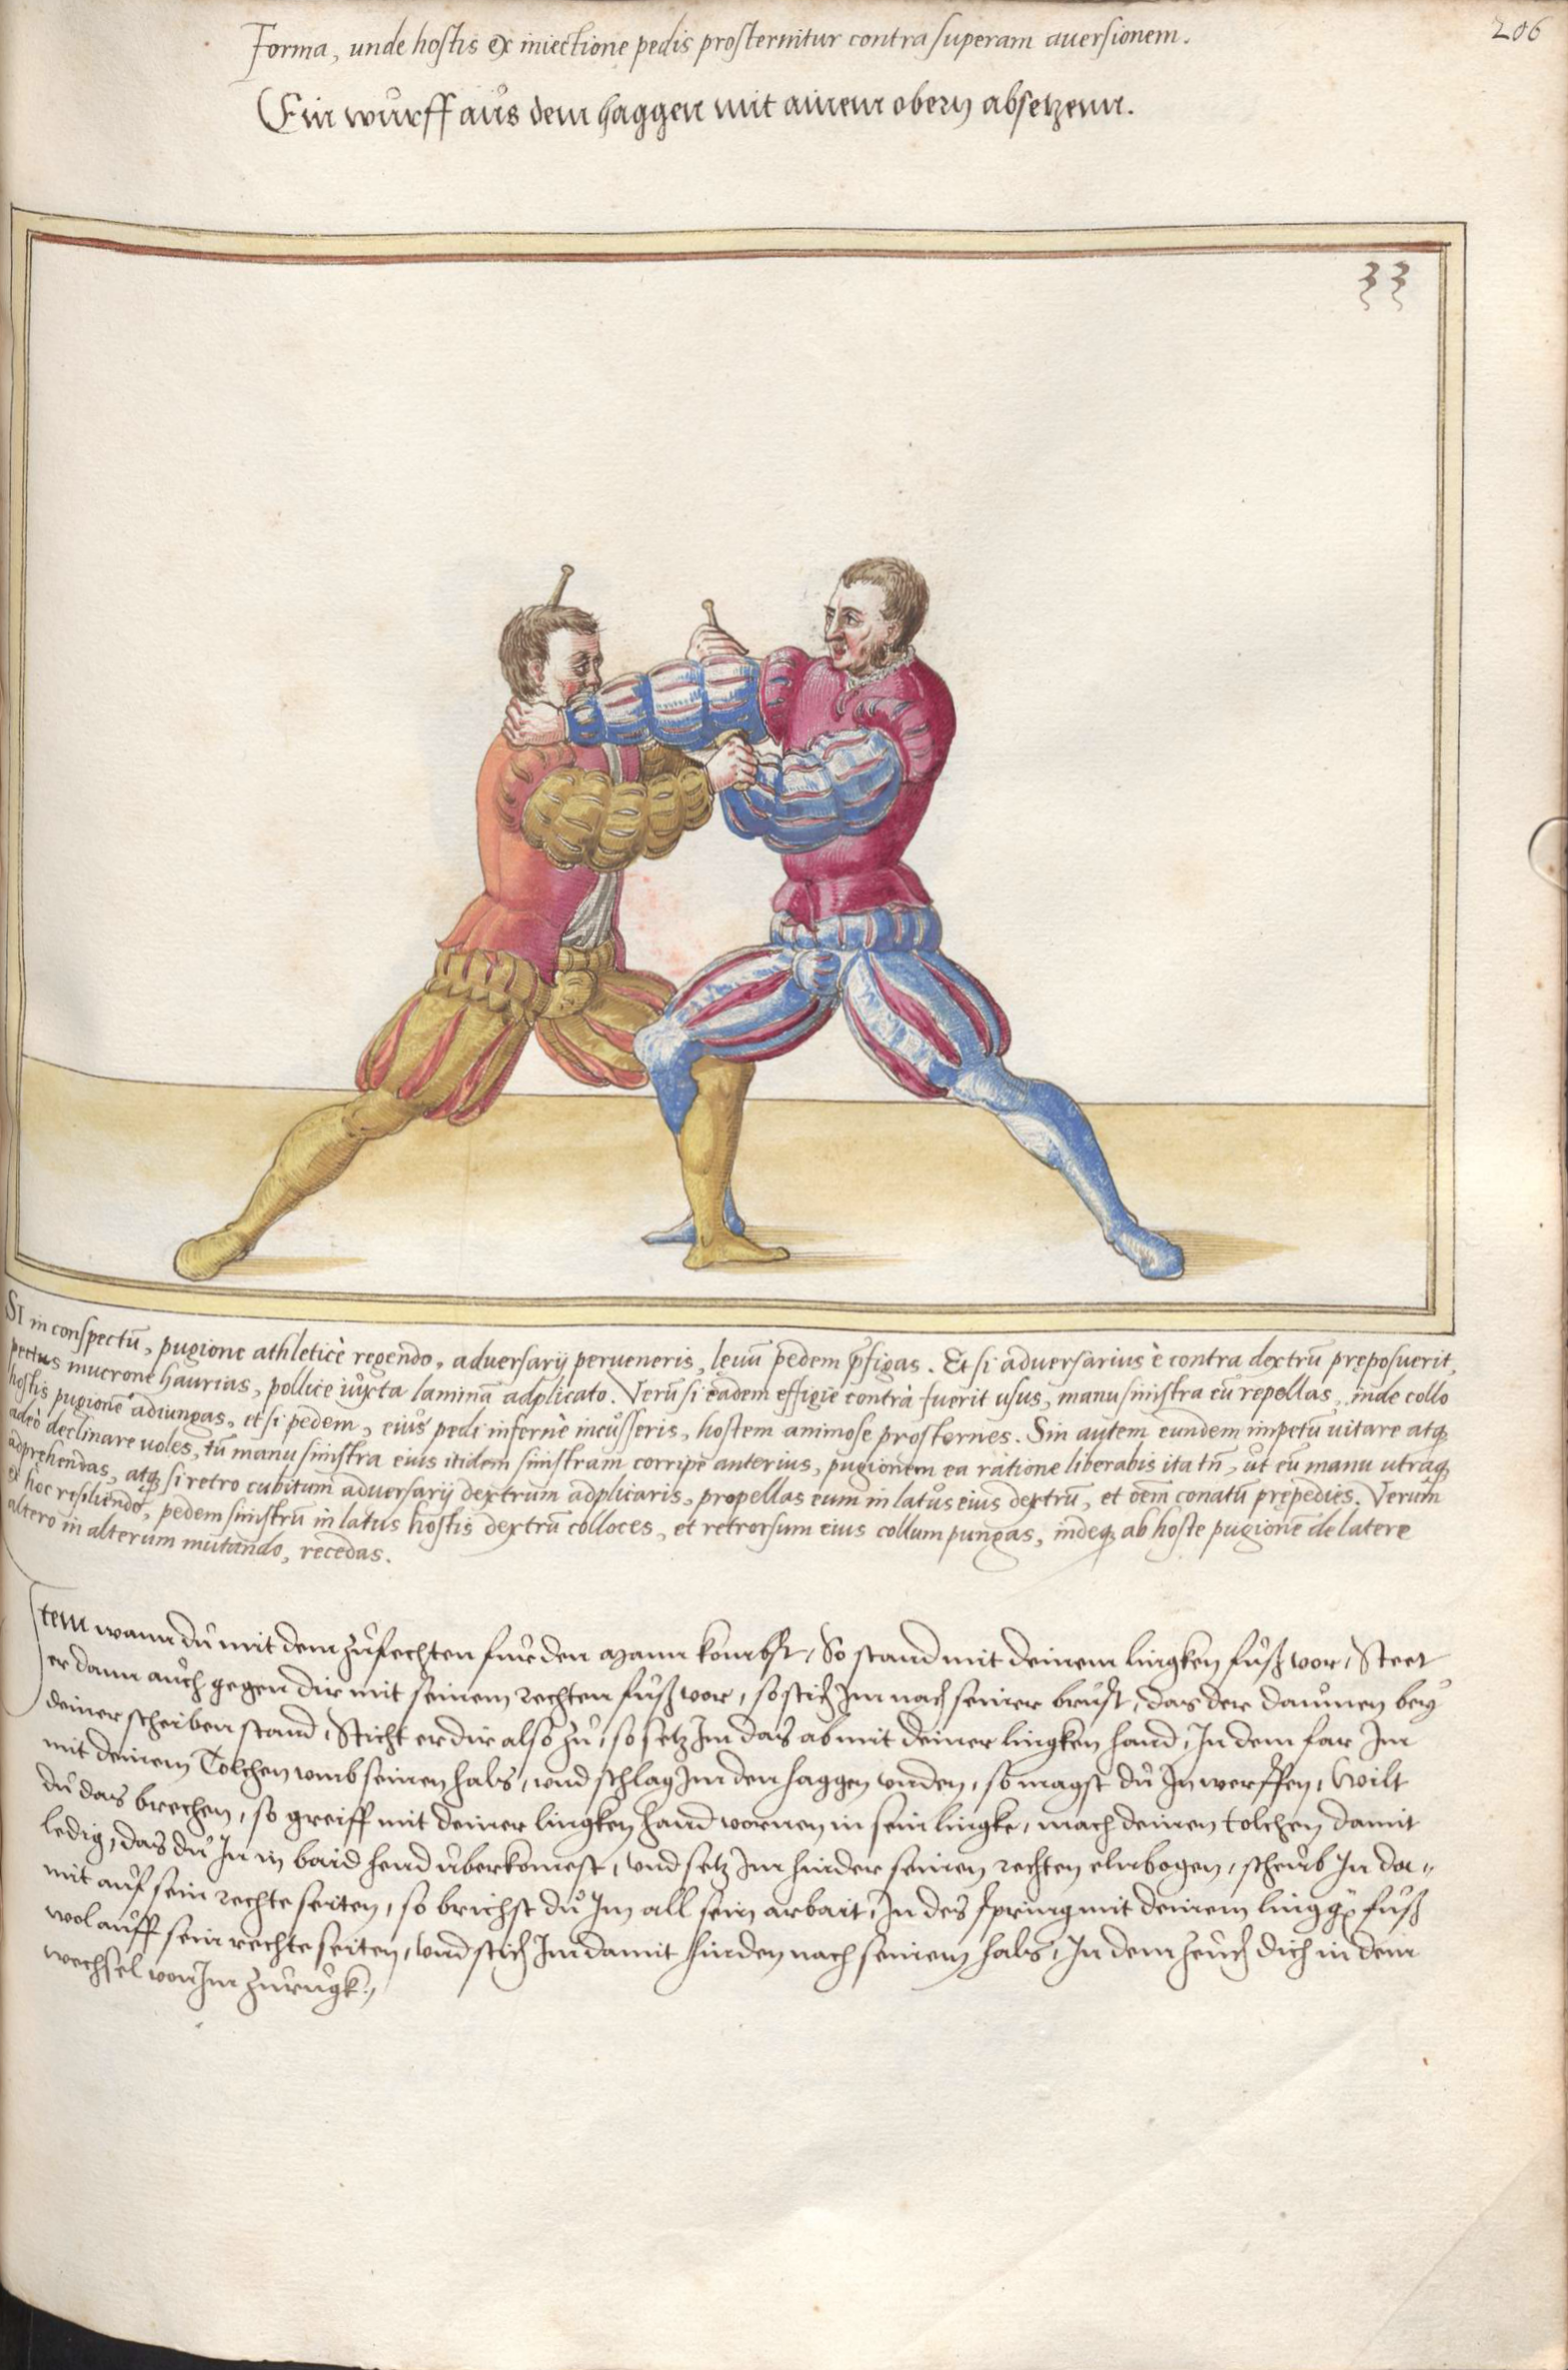 206
Forma, unde hostis ex iniectione pedis prosternitur contra superam aversionem.
Ein wůrff aůs dem haggen mit ainem obern absetzenn.
33
SI in conspectū, pugione athleticè regendo, adversarij perveneris, levū pedem p̄figas. Et si adversarius è contra dextrū pręposuerit,
pectus mucrone haurias, pollice iuxta laminā adplicato. Verū si eadem effigie contrà fuerit usus, manu sinistra eū repellas, inde collo
hostis pugionē adiungas, et si pedem, eius pedi infernè incusseris, hostem animose prosternes. Sin autem eundem impetū vitare atq
adeò declinare voles, tū manu sinistra eius itidem sinistram corripe anterius, pugionem ea ratione liberabis ita tn̄, ut eū manu utraq
adprehendas, atq si retro cubitum adversarij dextrum adplicaris, propellas eum in latus eius dextrū, et oēm conatū prępedies. Verum
ex hoc resiliendo, pedem sinistrū in latus hostis dextrū colloces, et retrorsum eius collum pungas, indeq ab hoste pugionē de latere
altero in alterum mutando, recedas.
Item wann dů mit dem zůfechten fur den Mann kombst, So stand mit deinem lingken fůß vor, Steet
er dann aůch gegen dir mit seinem rechten fůß vor, so stich Im nach seiner brůst, das der daůmen bey
deiner scheiben stand, Sticht er dir also zů, so setz Im das ab mit deiner lingken hand, In dem far Im
mit deinem Tolchen umb seinen hals, und schlag Im den haggen unden, so magst dů In werffen, Wilt
dů das brechen, so greiff mit deiner lingken hand vornen in sein lingke, mach deinen tolchen damit
ledig, das dů In in baid hend ůberkomest, und setz Im hinder seinen rechten elnbogen, scheůb In da„
mit aůf sein rechte seiten, so brichst dů Im all sein arbait, In des spring mit deinem lingg̃ fůß
wol aůff sein rechte seiten, und stich Im damit hinden nach seinem hals, In dem zeůch dich in dem
wechsel von Im zůrůgk.,